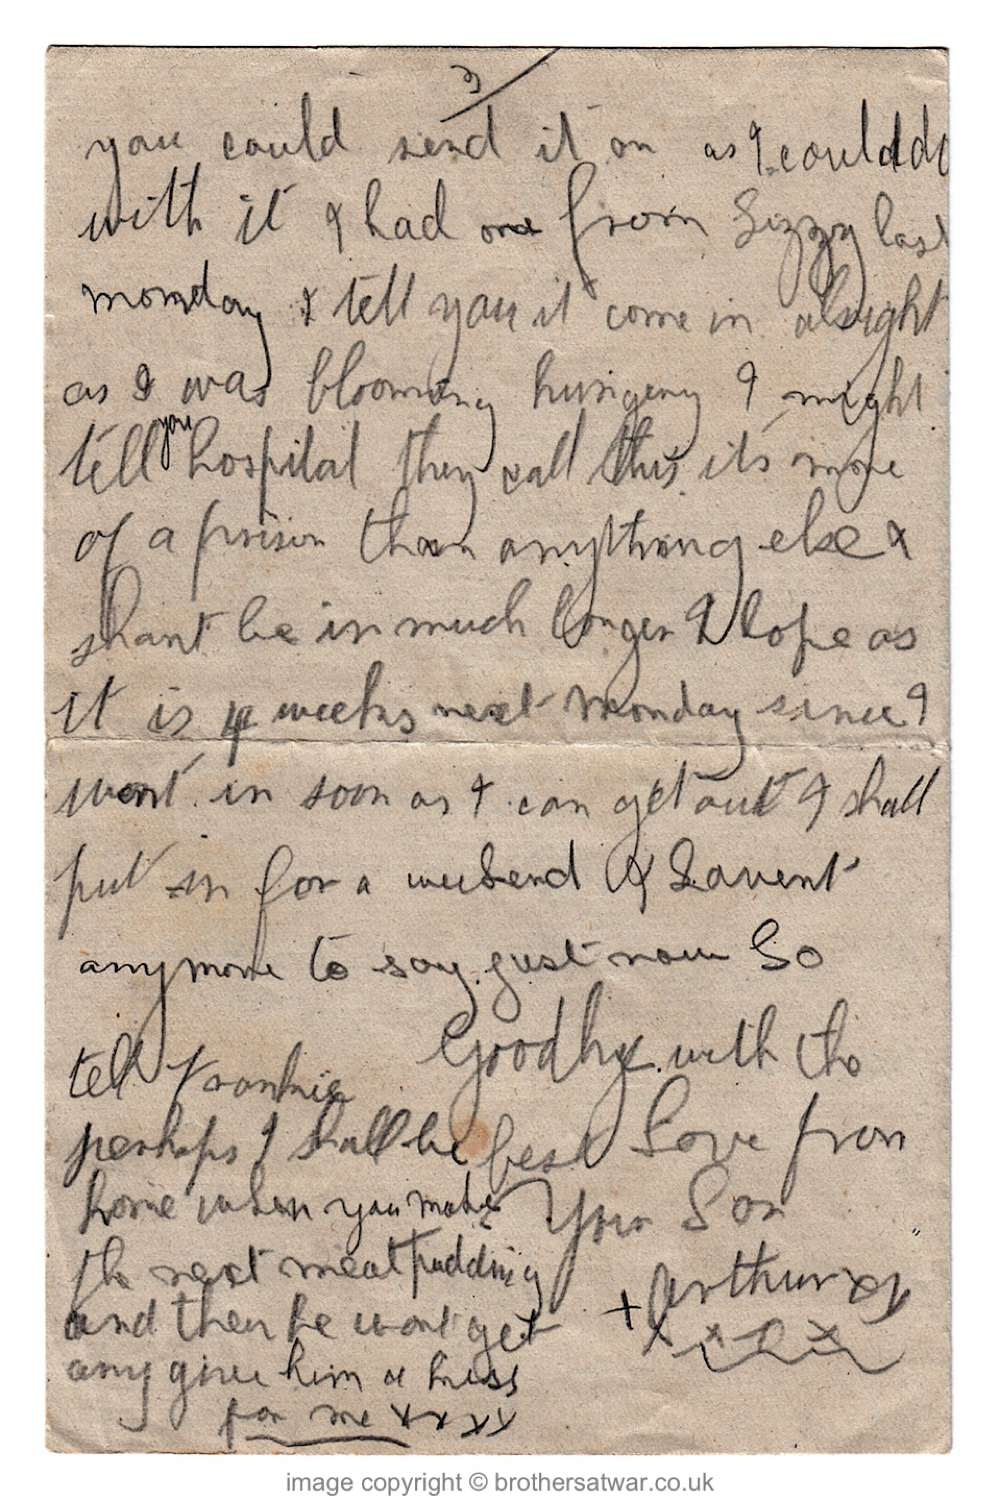 3
you could send it on as I could do
with it I had one from Lizzy last
monday & tell you it come in alright
as I was blooming hungery I might
tell you hospital they call this its more
of a prison than anything else &
shant be in much longer I hope as
it is 4 weeks next monday since I
went in soon as I can get out I shall
put in for a weekend I havent
anymore to say just now So
Goodbye with the
best Love from
Your Son
Arthur xx
x x x x x
tell Frankie
perhaps I shall be
home when you make
the next meat pudding
and then he wont get
any give him a kiss
for me xxxx
image copyright © brothersatwar.co.uk